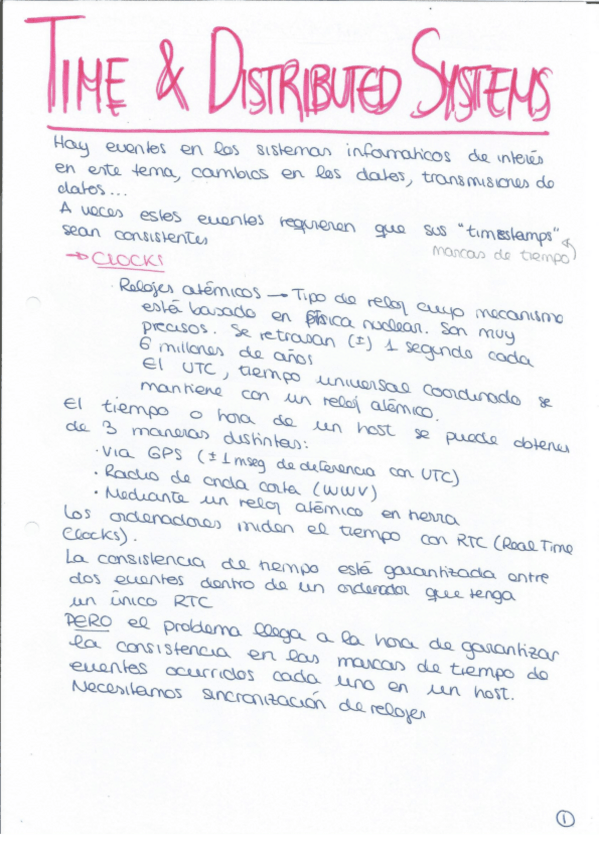 TIME & DISTRIBUTED SYSTEMS
Hay eventos en los sistemas informaticos de interés
en este tema, cambios en los datos, transmisiones de
datos...
A veces estos eventos requieren que sus "timestamps"
sean consistentes
marcas de tiempo
→ CLOCKS
· Relojes atómicos → Tipo de reloj cuyo mecanismo
está basado en física nuclear. Son muy
precisos. Se retrasan (±) 1 segundo cada
6 millones de años
El UTC, tiempo universal coordinado se
mantiene con un reloj atómico.
El tiempo o hora de un host se puede obtener
de 3 maneras distintas:
· Via GPS (±1mseg de deferencia con UTC)
· Radio de onda corta (WWV)
· Mediante un reloj atómico en tierra
Los ordenadores miden el tiempo con RTC (Real Time
Clocks).
La consistencia de tiempo está garantizada entre
dos eventos dentro de un ordenador que tenga
un único RTC
PERO el problema llega a la hora de garantizar
la consistencia en las marcas de tiempo de
eventos ocurridos cada uno en un host.
Necesitamos sincronización de relojes
1